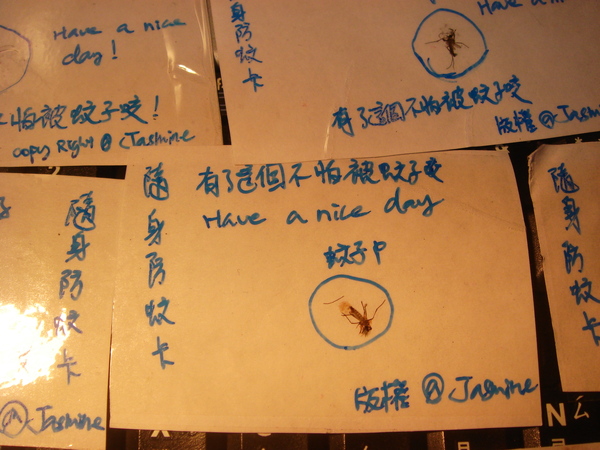 Have a nice
day!
不怕被蚊子咬!
copy Right @ Jasmine
隨身防蚊卡
有了這個不怕被蚊子咬
版權 @ Jasmine
隨身防蚊卡
有了這個不怕被蚊子咬
Have a nice day
蚊子尸
版權 @ Jasmine
隨身防蚊卡
Jasmine
隨身防蚊卡
N ㄙ